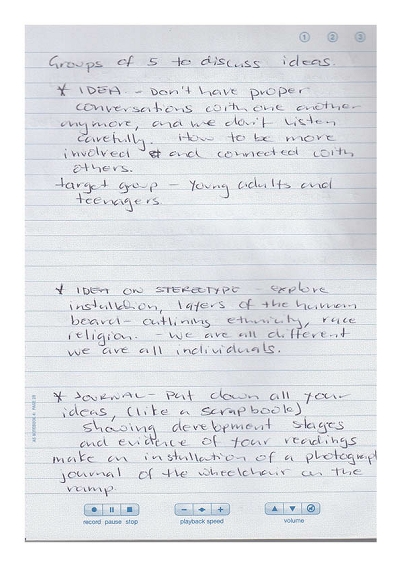 1 2 3
Groups of 5 to discuss ideas.
* IDEA - Don't have proper
conversations with one another
anymore, and we don't listen
carefully. How to be more
involved and connected with
others.
target group - Young adults and
teenagers
* IDEA ON STEREOTYPE - explore
installation, layers of the human
beard - outlining ethnicity, race
religion. - we are all different
we are all individuals.
* JOURNAL - Put down all your
ideas, (like a scrapbook)
showing development stages
and evidence of your readings
make an installation of a photograph
journal of the wheelchair on the
ramp.
record pause stop
playback speed
volume